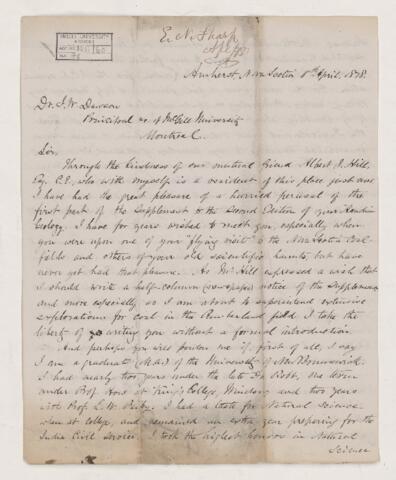 McGILL UNIVERSITY
ARCHIVES
E. N. Sharp
Amherst, Nova Scotia 8th April, 1878.
Dr. J. W. Dawson
Principal &c. of McGill University
Montreal.
Sir,
Through the kindness of our mutual friend Albert J. Hill,
Esq. C.E., who with myself is a resident of this place just now
I have had the great pleasure of a hurried perusal of the
first part of the Supplement to the Second Edition of your Acadian
Geology. I have for years wished to meet you, especially when
you were upon one of your flying visits to the Nova Scotia Coal-
fields and others of your old scientific haunts, but have
never yet had that pleasure. As Mr Hill expressed a wish that
I should write a half-column newspaper notice of the Supplement
and more especially as I am about to superintend extensive
explorations for coal in the Cumberland field I take the
liberty of writing you without a formal introduction.
And perhaps you will pardon me if, first of all, I say
I am a graduate (M.A.) of the University of New Brunswick.
I had nearly two years under the late Dr. Robb, one term
under Prof. How at King's College, Windsor, and two years
with Prof. L. W. Bailey. I had a taste for Natural Science
when at college, and remained an extra year preparing for the
India Civil Service. I took the highest honors in Natural
Science